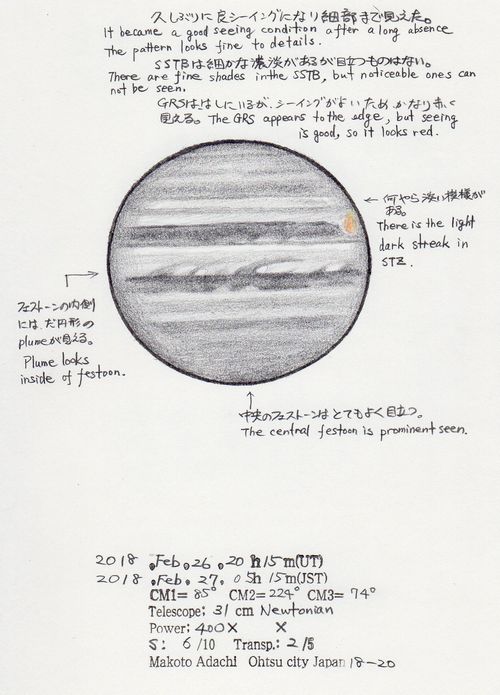 久しぶりに良シーイングになり細部まで見えた。
It became a good seeing condition after a long absence
The pattern looks fine to details.
SSTBは細かな濃淡があるが目立つものはない。
There are fine shades in the SSTB, but noticeable ones can
not be seen.
GRSははしにいるが、シーイングがよいためかなり赤く
見える。The GRS appears to the edge, but seeing
is good, so it looks red.
← 何やら淡い模様が
ある。
There is the light
dark streak in
STZ.
フェストーンの内側
には、だ円形の
plumeが見える。
Plume looks
inside of festoon.
中央のフェストーンはとてもよく目立つ。
The central festoon is prominent seen.
2018 .Feb. 26 . 20 h 15 m(UT)
2018 .Feb. 27. 05h 15m(JST)
CM1= 85° CM2= 224° CM3= 74°
Telescope: 31 cm Newtonian
Power: 400× ×
S: 6 /10 Transp.: 2 /5
Makoto Adachi Ohtsu city Japan 18-20